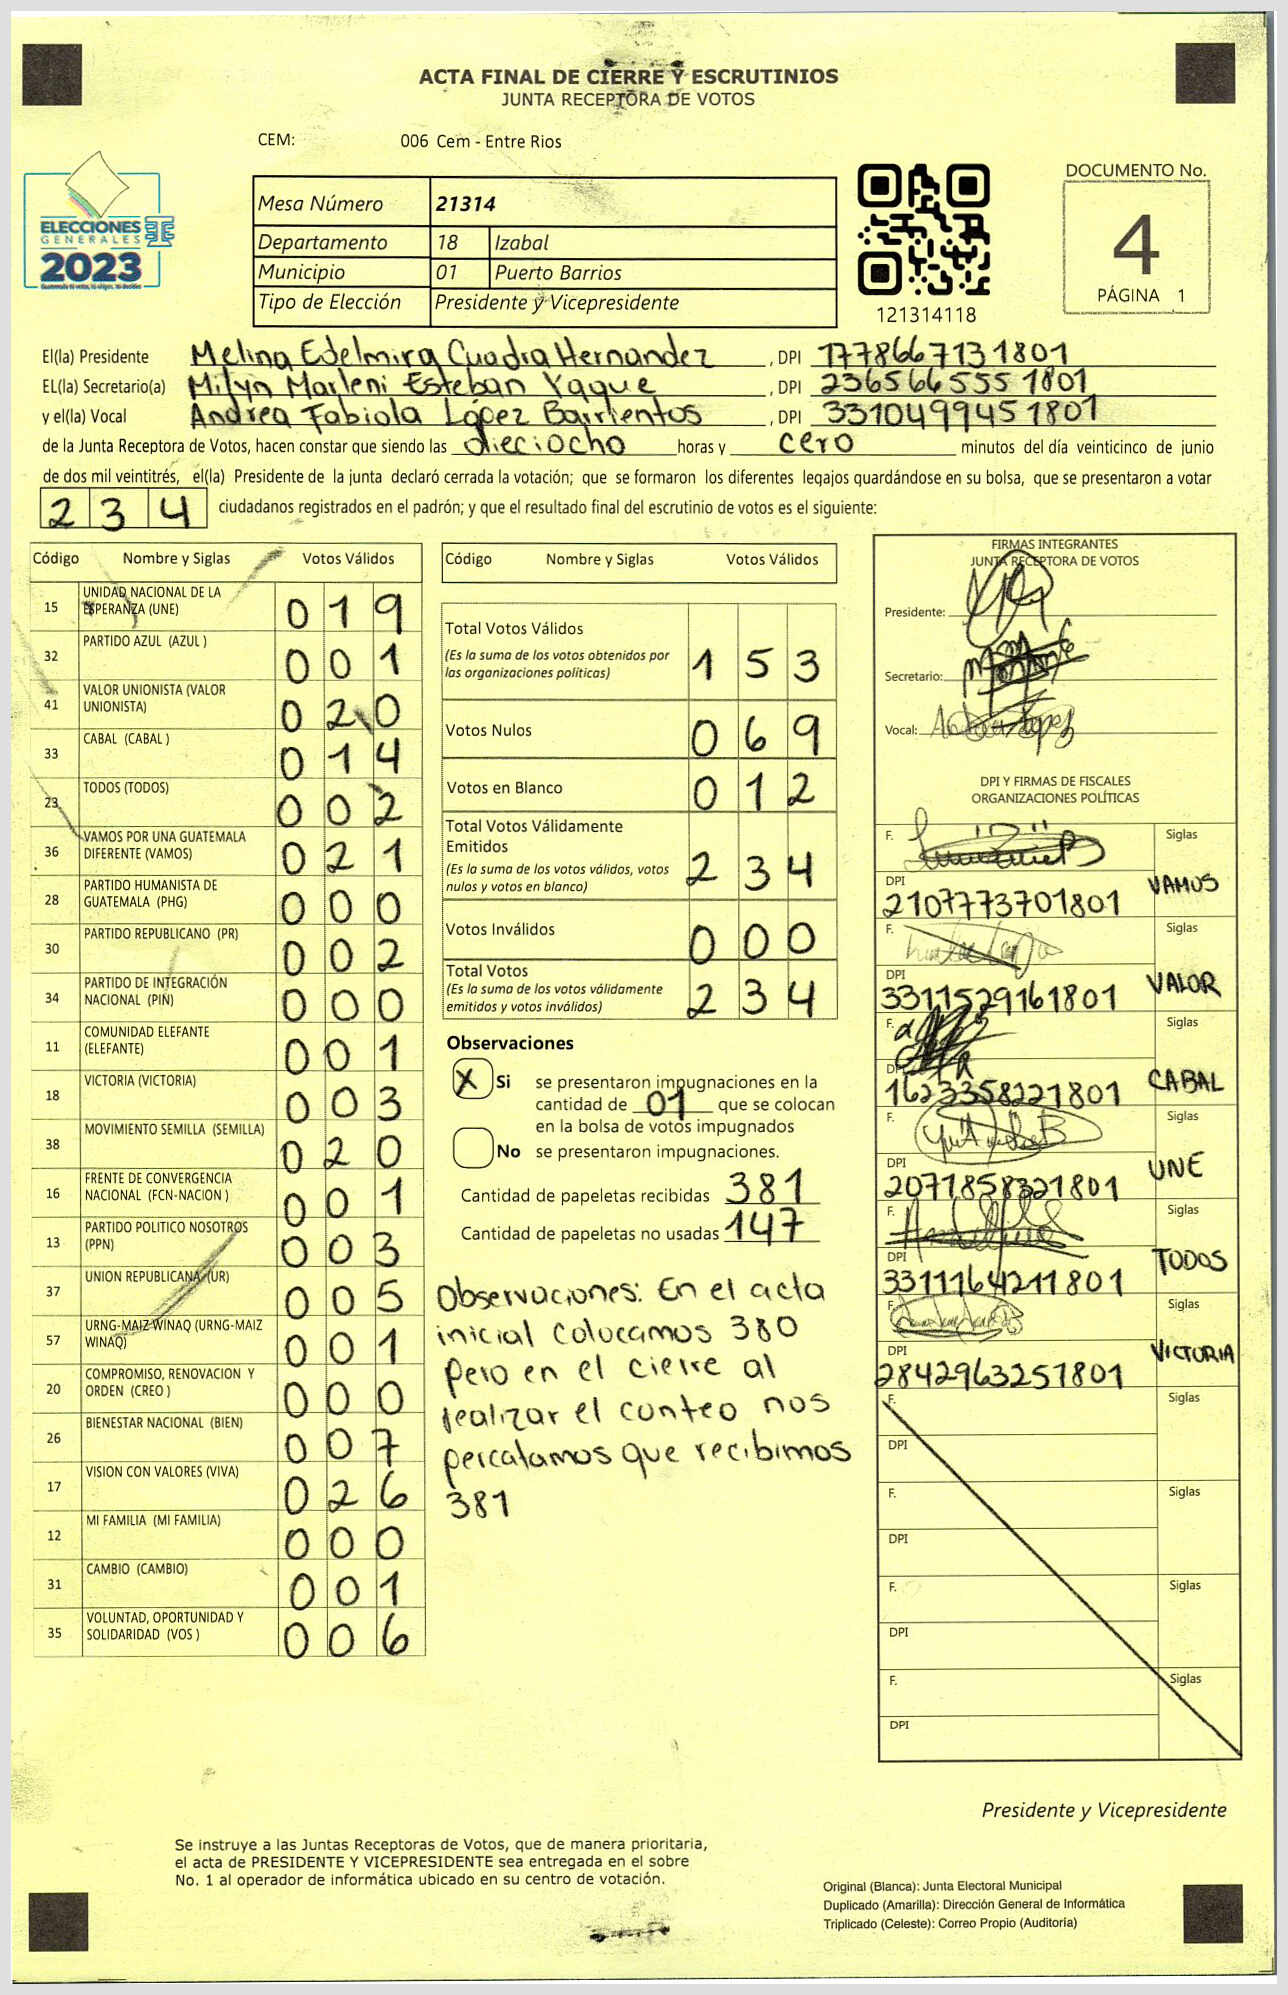 ACTA FINAL DE CIERRE Y ESCRUTINIOS
JUNTA RECEPTORA DE VOTOS
CEM: 006 Cem - Entre Rios
ELECCIONES
GENERALES
2023
Mesa Número 21314
Departamento 18 Izabal
Municipio 01 Puerto Barrios
Tipo de Elección Presidente y Vicepresidente
121314118
DOCUMENTO No.
4
PÁGINA 1
El(la) Presidente Melina Edelmira Cuadra Hernandez, DPI 1778667131801
EL(la) Secretario(a) Milyn Marleni Esteban Yaque, DPI 2365665551801
y el(la) Vocal Andrea Fabiola López Barrientos, DPI 3310499451801
de la Junta Receptora de Votos, hacen constar que siendo las dieciocho horas y cero minutos del día veinticinco de junio
de dos mil veintitrés, el(la) Presidente de la junta declaró cerrada la votación; que se formaron los diferentes legajos guardándose en su bolsa, que se presentaron a votar
234 ciudadanos registrados en el padrón; y que el resultado final del escrutinio de votos es el siguiente:
Código Nombre y Siglas Votos Válidos
15 UNIDAD NACIONAL DE LA ESPERANZA (UNE) 019
32 PARTIDO AZUL (AZUL ) 001
41 VALOR UNIONISTA (VALOR UNIONISTA) 020
33 CABAL (CABAL ) 014
23 TODOS (TODOS) 002
36 VAMOS POR UNA GUATEMALA DIFERENTE (VAMOS) 021
28 PARTIDO HUMANISTA DE GUATEMALA (PHG) 000
30 PARTIDO REPUBLICANO (PR) 002
34 PARTIDO DE INTEGRACIÓN NACIONAL (PIN) 000
11 COMUNIDAD ELEFANTE (ELEFANTE) 001
18 VICTORIA (VICTORIA) 003
38 MOVIMIENTO SEMILLA (SEMILLA) 020
16 FRENTE DE CONVERGENCIA NACIONAL (FCN-NACION ) 001
13 PARTIDO POLITICO NOSOTROS (PPN) 003
37 UNION REPUBLICANA (UR) 005
57 URNG-MAIZ WINAQ (URNG-MAIZ WINAQ) 001
20 COMPROMISO, RENOVACION Y ORDEN (CREO ) 000
26 BIENESTAR NACIONAL (BIEN) 007
17 VISION CON VALORES (VIVA) 026
12 MI FAMILIA (MI FAMILIA) 000
31 CAMBIO (CAMBIO) 001
35 VOLUNTAD, OPORTUNIDAD Y SOLIDARIDAD (VOS ) 006
Código Nombre y Siglas Votos Válidos
Total Votos Válidos 153
(Es la suma de los votos obtenidos por
las organizaciones políticas)
Votos Nulos 069
Votos en Blanco 012
Total Votos Válidamente
Emitidos 234
(Es la suma de los votos válidos, votos
nulos y votos en blanco)
Votos Inválidos 000
Total Votos 234
(Es la suma de los votos válidamente
emitidos y votos inválidos)
Observaciones
X Si se presentaron impugnaciones en la
cantidad de 01 que se colocan
en la bolsa de votos impugnados
No se presentaron impugnaciones.
Cantidad de papeletas recibidas 381
Cantidad de papeletas no usadas 147
Observaciones: En el acta
inicial colocamos 380
pero en el cierre al
realizar el conteo nos
percatamos que recibimos
381
FIRMAS INTEGRANTES
JUNTA RECEPTORA DE VOTOS
Presidente:
Secretario:
Vocal:
DPI Y FIRMAS DE FISCALES
ORGANIZACIONES POLÍTICAS
F. Siglas
DPI 2107773701801 VAMOS
F. Siglas
DPI 3311529161801 VALOR
F. Siglas
DPI 1623358221801 CABAL
F. Siglas
DPI 2071858321801 UNE
F. Siglas
DPI 3311164211801 TODOS
F. Siglas
DPI 2842963251801 VICTORIA
F. Siglas
DPI
F. Siglas
DPI
F. Siglas
DPI
F. Siglas
DPI
Presidente y Vicepresidente
Se instruye a las Juntas Receptoras de Votos, que de manera prioritaria,
el acta de PRESIDENTE Y VICEPRESIDENTE sea entregada en el sobre
No. 1 al operador de informática ubicado en su centro de votación.
Original (Blanca): Junta Electoral Municipal
Duplicado (Amarilla): Dirección General de Informática
Triplicado (Celeste): Correo Propio (Auditoría)